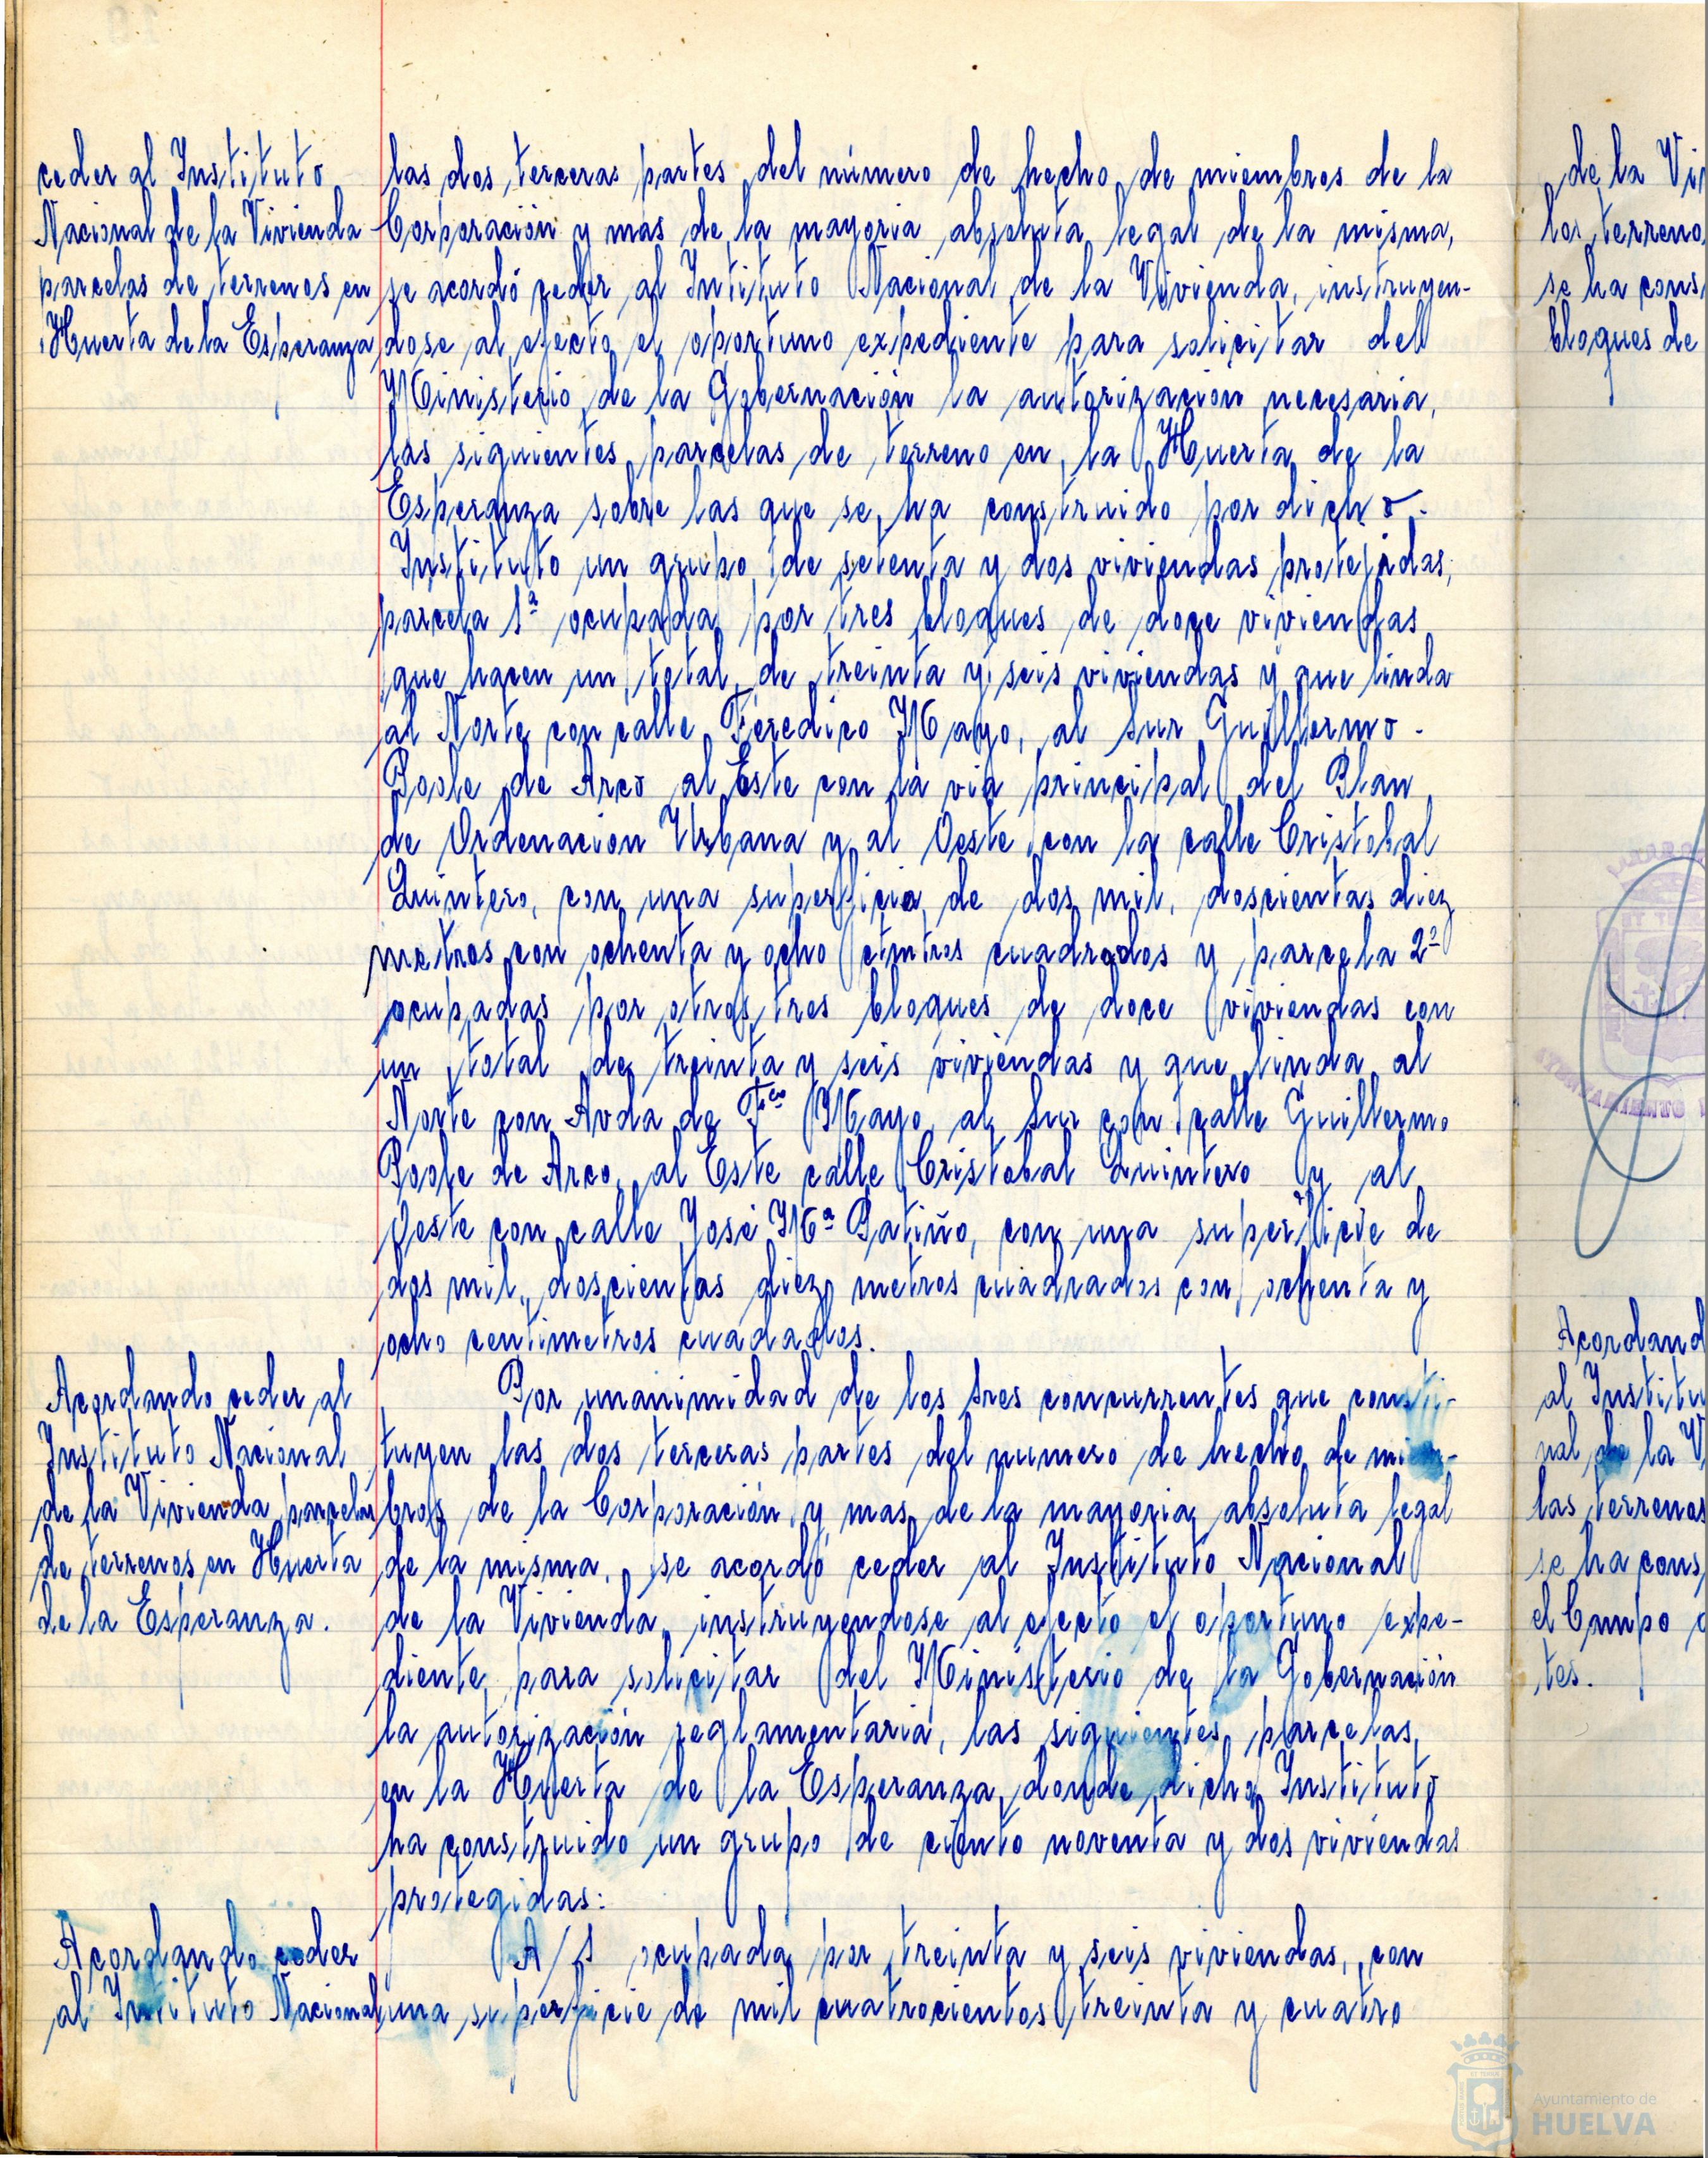 ceder al Instituto
Nacional de la Vivienda
parcelas de terrenos en
Huerta de la Esperanza
las dos terceras partes del número de hecho de miembros de la
Corporación y mas de la mayoria absoluta legal de la misma,
se acordó ceder al Intituto Nacional de la Vivienda, instruyen-
dose al efecto el oportuno expediente para solicitar del
Ministerio de la Gobernación la autorización necesaria,
las siguientes parcelas de terreno en la Huerta de la
Esperanza sobre las que se ha construido por dicho
Instituto un grupo de setenta y dos viviendas protegidas;
parcela 1ª ocupada por tres bloques de doce viviendas
que hacen un total de treinta y seis viviendas y que linda
al Norte con calle Feredico Mayo, al Sur Guillermo
Poole de Arco al Este con la via principal del Plan
de Ordenación Urbana y al Oeste con la calle Cristobal
Quintero, con una superficie de dos mil, doscientas diez
metros con ochenta y ocho ctmtros cuadrados y parcela 2ª
ocupadas por otros tres bloques de doce viviendas con
un total de treinta y seis viviendas y que linda al
Norte con Avda de Fco Mayo al Sur con calle Guillermo
Poole de Arco, al Este calle Cristobal Quintero y al
Oeste con calle José Mª Patiño, con una superficie de
dos mil, doscientas diez metros cuadrados con ochenta y
ocho centimetros cuadados.
Acordando ceder al
Instituto Nacional
de la Vivienda parcelas
de terrenos en Huerta
de la Esperanza.
Por unanimidad de los Sres concurrentes que consti-
tuyen las dos terceras partes del numero de hecho de miem-
bros de la Corporación y mas de la mayoria absoluta legal
de la misma, se acordó ceder al Instituto Nacional
de la Vivienda, instruyendose al efecto el oportuno expe-
diente para solicitar del Ministerio de la Gobernación
la autorización reglamentaria, las siguientes parcelas
en la Huerta de la Esperanza donde dicho Instituto
ha construido un grupo de ciento noventa y dos viviendas
protegidas:
Acordando ceder
al Instituto Nacional
A/1 ocupada por treinta y seis viviendas, con
una superficie de mil cuatrocientos treinta y cuatro
de la Vi
los terreno
se ha cons
bloques de
Acordand
al Institu
nal de la V
las terrenos
se ha cons
el Campo
tes.
Ayuntamiento de
HUELVA